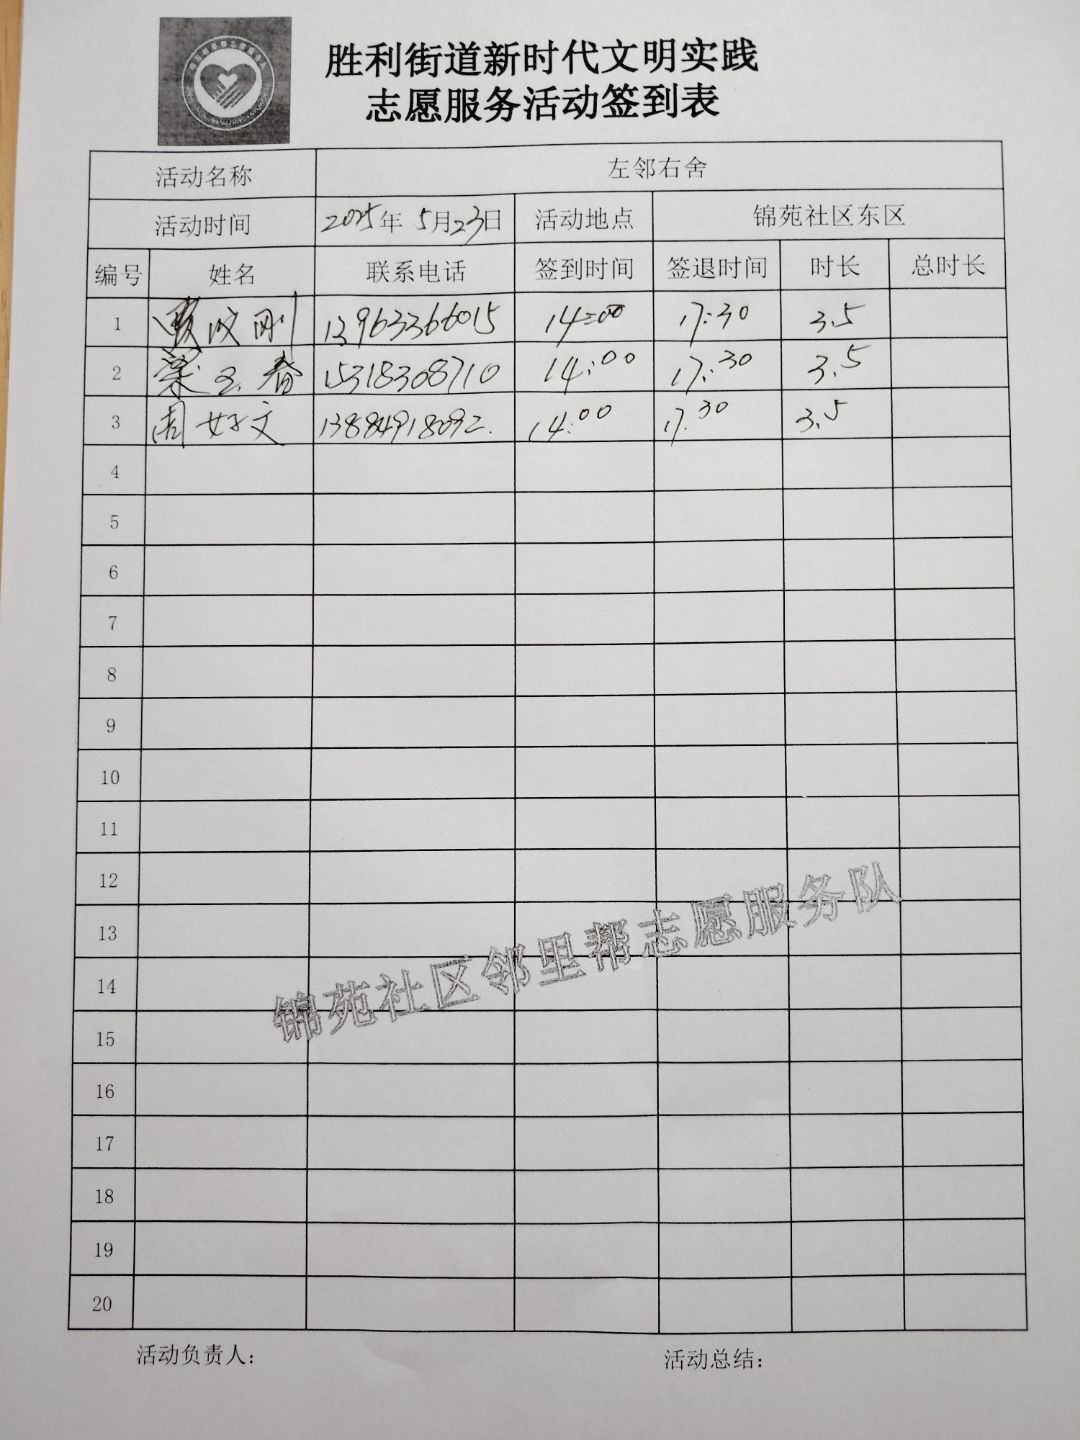 胜利街道新时代文明实践
志愿服务活动签到表
活动名称 左邻右舍
活动时间 2025年5月23日 活动地点 锦苑社区东区
编号 姓名 联系电话 签到时间 签退时间 时长 总时长
1 刚 13963366015 14:00 17:30 3.5
2 梁玉春 15318308710 14:00 17:30 3.5
3 周好文 13884918092. 14:00 17:30 3.5
4
5
6
7
8
9
10
11
12
13
锦苑社区邻里帮志愿服务队
14
15
16
17
18
19
20
活动负责人: 活动总结: